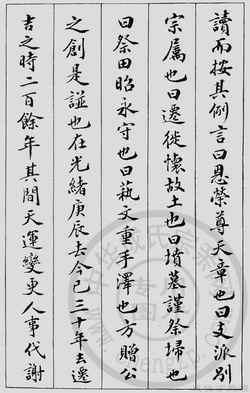 讀而按其例言曰恩榮尊天章也曰支派別
宗属也曰遷徙懷故土也曰墳墓謹祭埽也
曰祭田昭永守也曰藝文重手澤也方贈公
之創是諡也在光緒庚辰去今已三十年去遷
吉之時二百餘年其間天運變更人事代謝